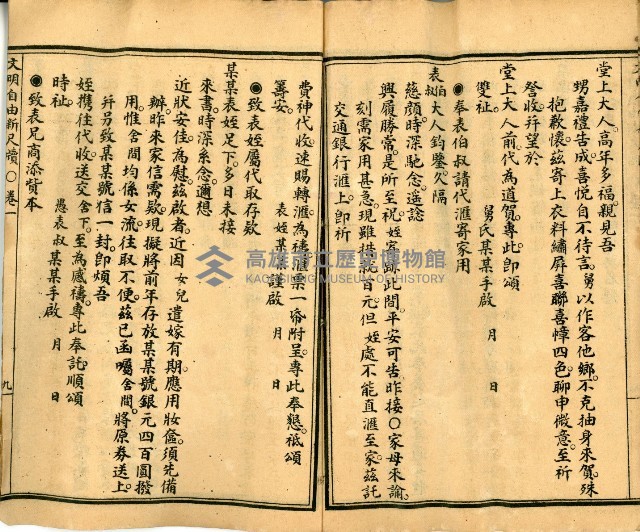 堂上大人。高年多福。親見吾
甥嘉禮告成。喜悅自不待言。舅以作客他鄉。不克抽身來賀。殊
抱歉懷。茲寄上衣料繡屏喜聯喜幛四色。聊申微意。至祈
詧收。并望於
堂上大人前代為道賀。專此卽頌
雙祉。 舅氏某某手啟 月 日
●奉表伯叔請代滙寄家用
表伯叔大人鈞鑒。久隔
慈顏。時深馳念。遙諗
興履勝常。是所至祝。姪寄跡此間。平安可告。昨接○家母來諭。
刻需家用甚急。現雖措就百元。但姪處不能直滙至家。茲託
交通銀行滙上。卽祈
費神代收。速賜轉滙為禱。滙票一帋附呈。專此奉懇。祇頌
籌安。 表姪某某謹啟 月 日
●致表姪屬代取存欵
某某表姪足下。多日未接
來書。時深系念。邇想
近狀安佳。為慰。茲啟者。近因女兒遣嫁有期。應用妝奩。須先備
辦。昨來家信需欵。現擬將前年存放某某號銀元四百圓撥
用。惟舍間均係女流。往取不便。茲已函囑舍間。將原券送上。
并另致某某號信一封。卽煩吾
姪攜往代收。送交舍下。至為感禱。專此奉託。順頌
時祉。 愚表叔某某手啟 月 日
●致表兄商添資本
文明自由新尺牘○卷一
九
高雄市立歷史博物館
KAOHSIUNG MUSEUM OF HISTORY